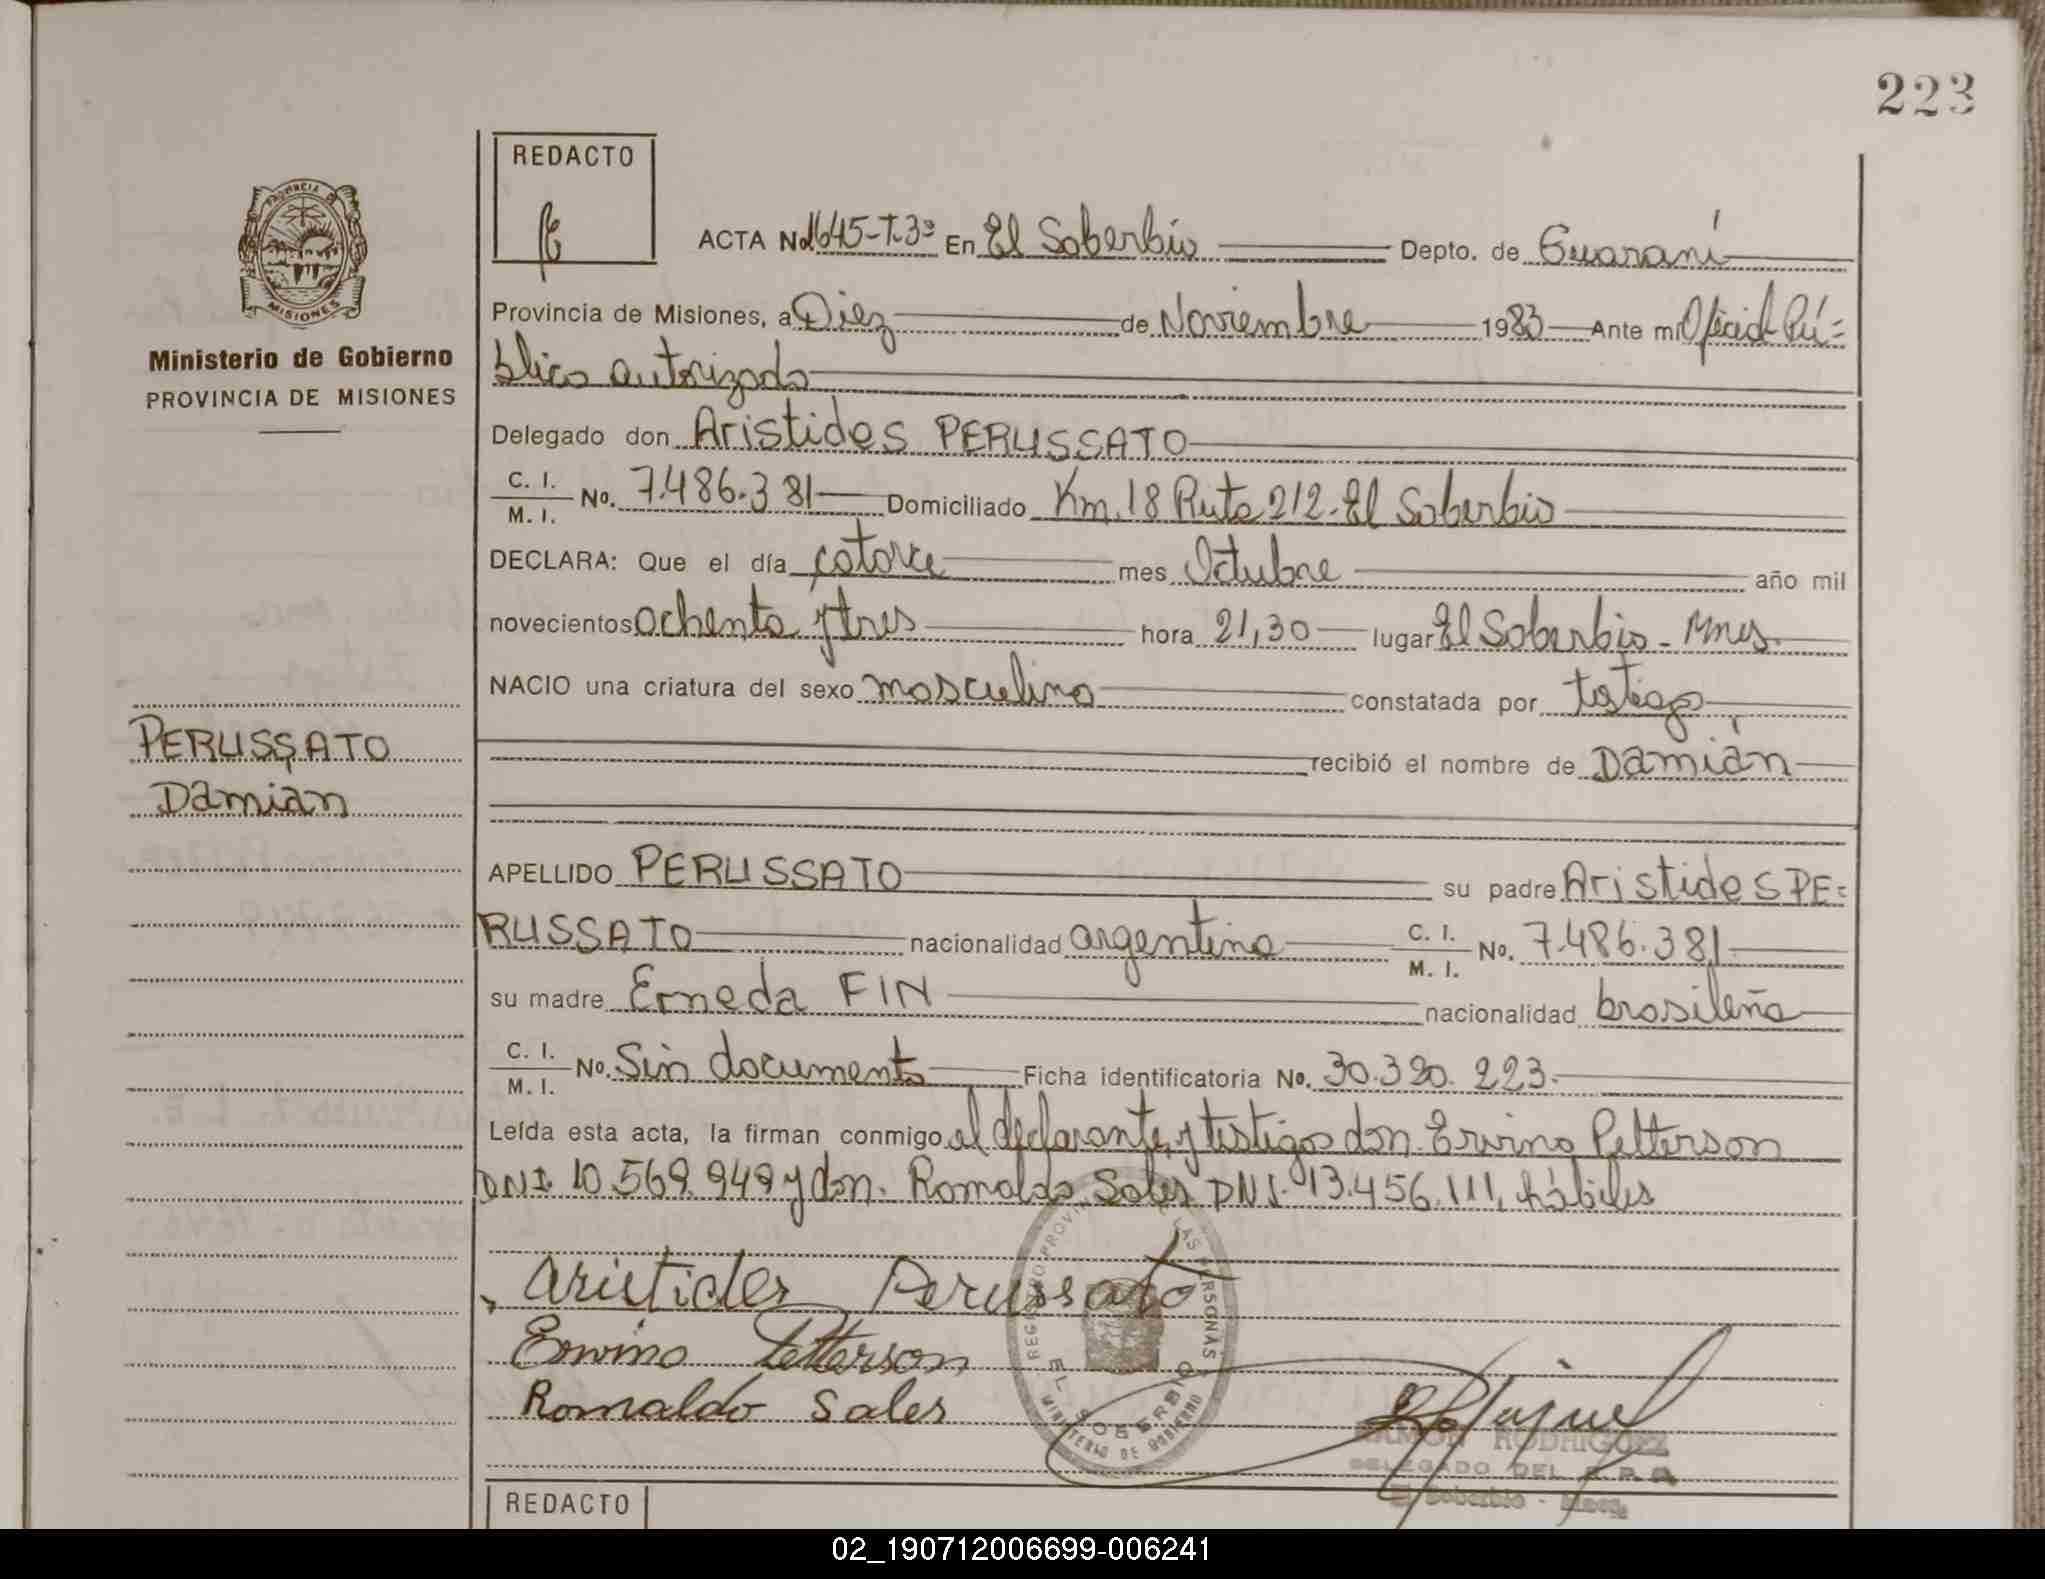 223
REDACTO
PROVINCIA
MISIONES
Ministerio de Gobierno
PROVINCIA DE MISIONES
ACTA No 1645-T-3º En El Soberbio Depto. de Guaraní
Provincia de Misiones, a Diez de Noviembre 1983 Ante mi Oficial Pú=
blico autorizado
Delegado don Aristides PERUSSATO
C. I.
M. I. No. 7.486.381 Domiciliado Km. 18 Ruta 212-El Soberbio
DECLARA: Que el día catorce mes Octubre año mil
novecientos ochenta y tres hora 21,30 lugar El Soberbio - Mnes.
NACIO una criatura del sexo masculino constatada por testigo
PERUSSATO
Damián
recibió el nombre de Damián
APELLIDO PERUSSATO su padre Aristides PE=
RUSSATO nacionalidad argentino C. I.
M. I. No. 7.486.381
su madre Erneda FIN nacionalidad brasileña
C. I.
M. I. No. Sin documento Ficha identificatoria No. 30.390.223.
Leída esta acta, la firman conmigo el declarante, y testigos don Ervino Petterson
DNI. 10.569.949 y don. Romaldo Sales DNI. 13.456.111, hábiles
Aristides Perussato
Erwino Petterson
Romaldo Sales
REGISTRO PROVINCIAL LAS PERSONAS
EL SOBERBIO
MINISTERIO DE GOBIERNO
RAMON RODRIGUEZ
DELEGADO DEL R. P. P.
El Soberbio - Mnes.
REDACTO
02_190712006699-006241